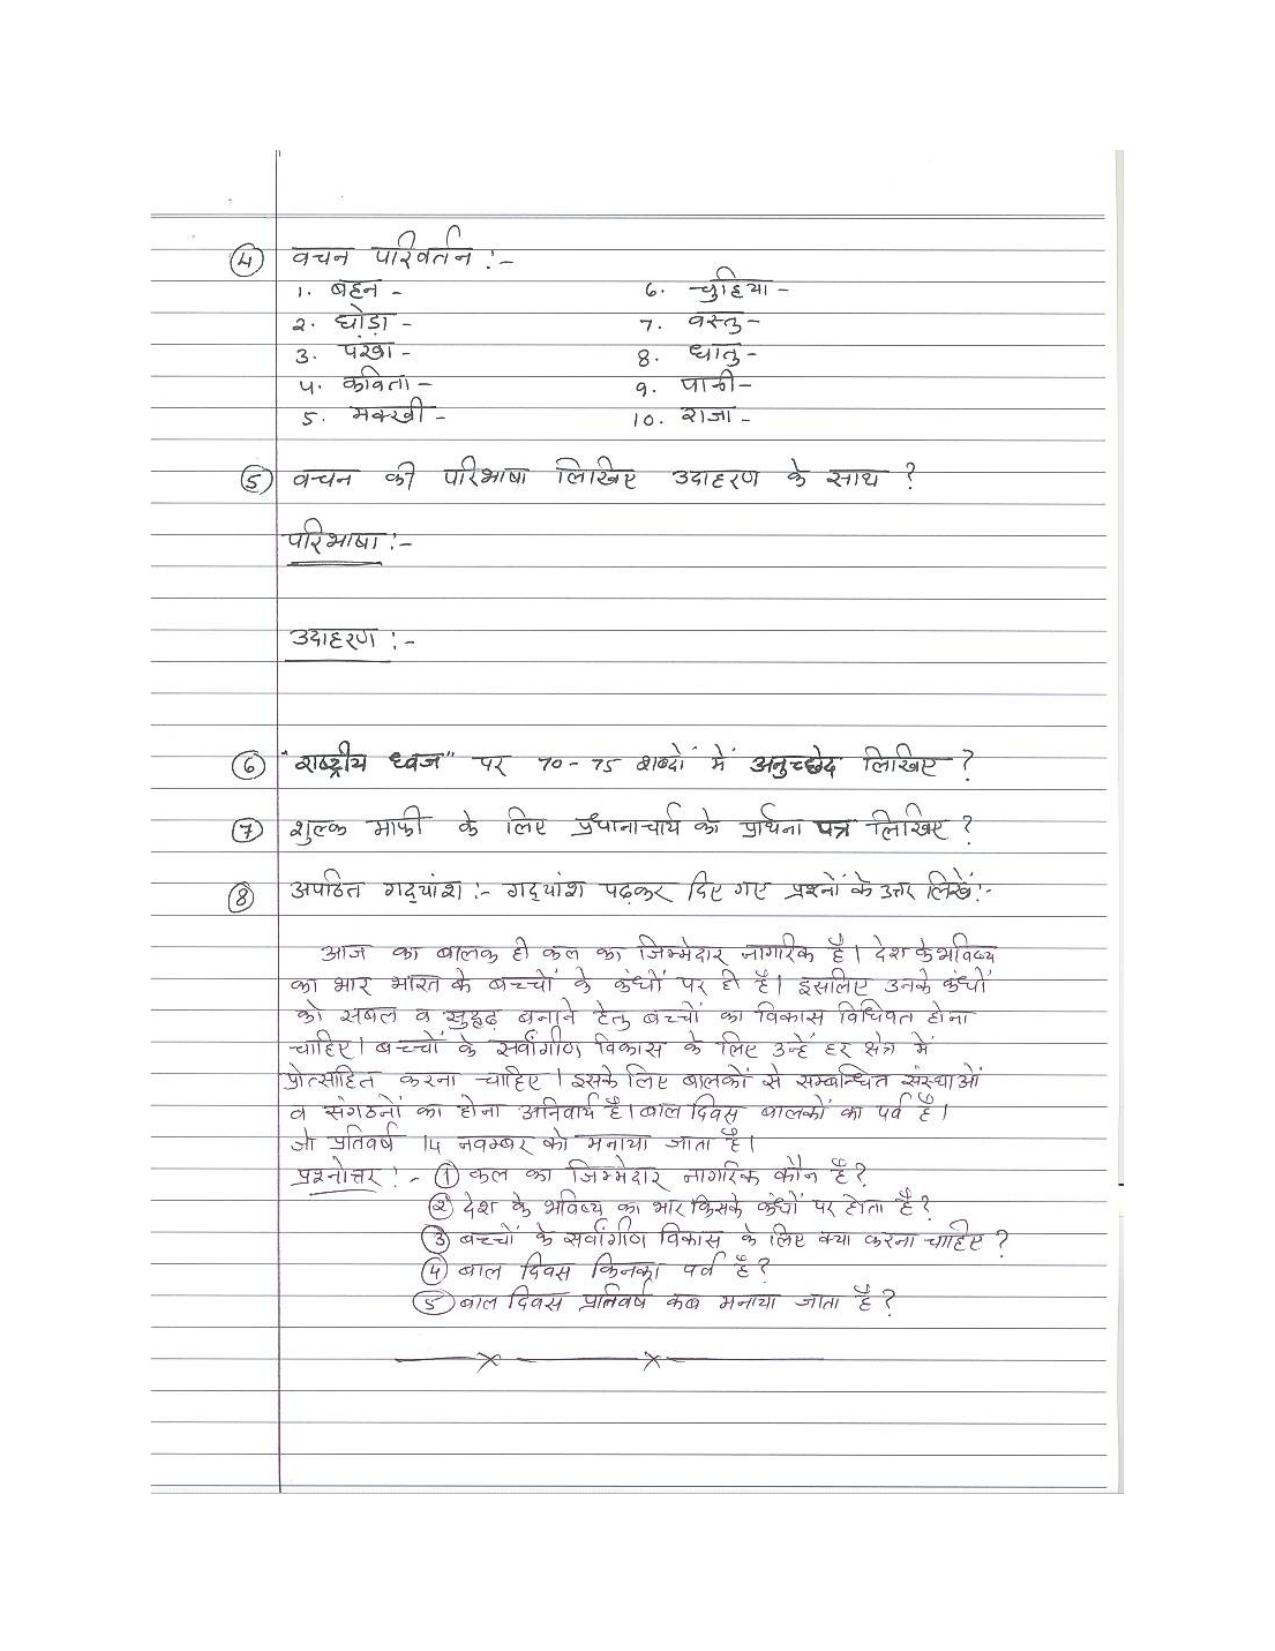 ④ वचन परिवर्तन :-
1. बहन - 6. चुहिया -
2. घोड़ा - 7. वस्तु -
3. पंखा - 8. धातु -
4. कविता - 9. पत्नी -
5. मक्खी - 10. राजा -
⑤ वचन की परिभाषा लिखिए उदाहरण के साथ ?
परिभाषा :-
उदाहरण :-
⑥ "राष्ट्रीय ध्वज" पर 70-75 शब्दों में अनुच्छेद लिखिए ?
⑦ शुल्क माफी के लिए प्रधानाचार्य को प्रार्थना पत्र लिखिए ?
⑧ अपठित गद्यांश :- गद्यांश पढ़कर दिए गए प्रश्नों के उत्तर लिखें :-
आज का बालक ही कल का जिम्मेदार नागरिक है। देश के भविष्य
का भार भारत के बच्चों के कंधों पर ही है। इसलिए उनके कंधों
को सबल व सुदृढ़ बनाने हेतु बच्चों का विकास विधिवत होना
चाहिए। बच्चों के सर्वांगीण विकास के लिए उन्हें हर क्षेत्र में
प्रोत्साहित करना चाहिए। इसके लिए बालकों से सम्बन्धित संस्थाओं
व संगठनों का होना अनिवार्य है। बाल दिवस बालकों का पर्व है।
जो प्रतिवर्ष 14 नवम्बर को मनाया जाता है।
प्रश्नोत्तर :- ① कल का जिम्मेदार नागरिक कौन है?
② देश के भविष्य का भार किसके कंधों पर होता है?
③ बच्चों के सर्वांगीण विकास के लिए क्या करना चाहिए ?
④ बाल दिवस किनका पर्व है?
⑤ बाल दिवस प्रतिवर्ष कब मनाया जाता है?